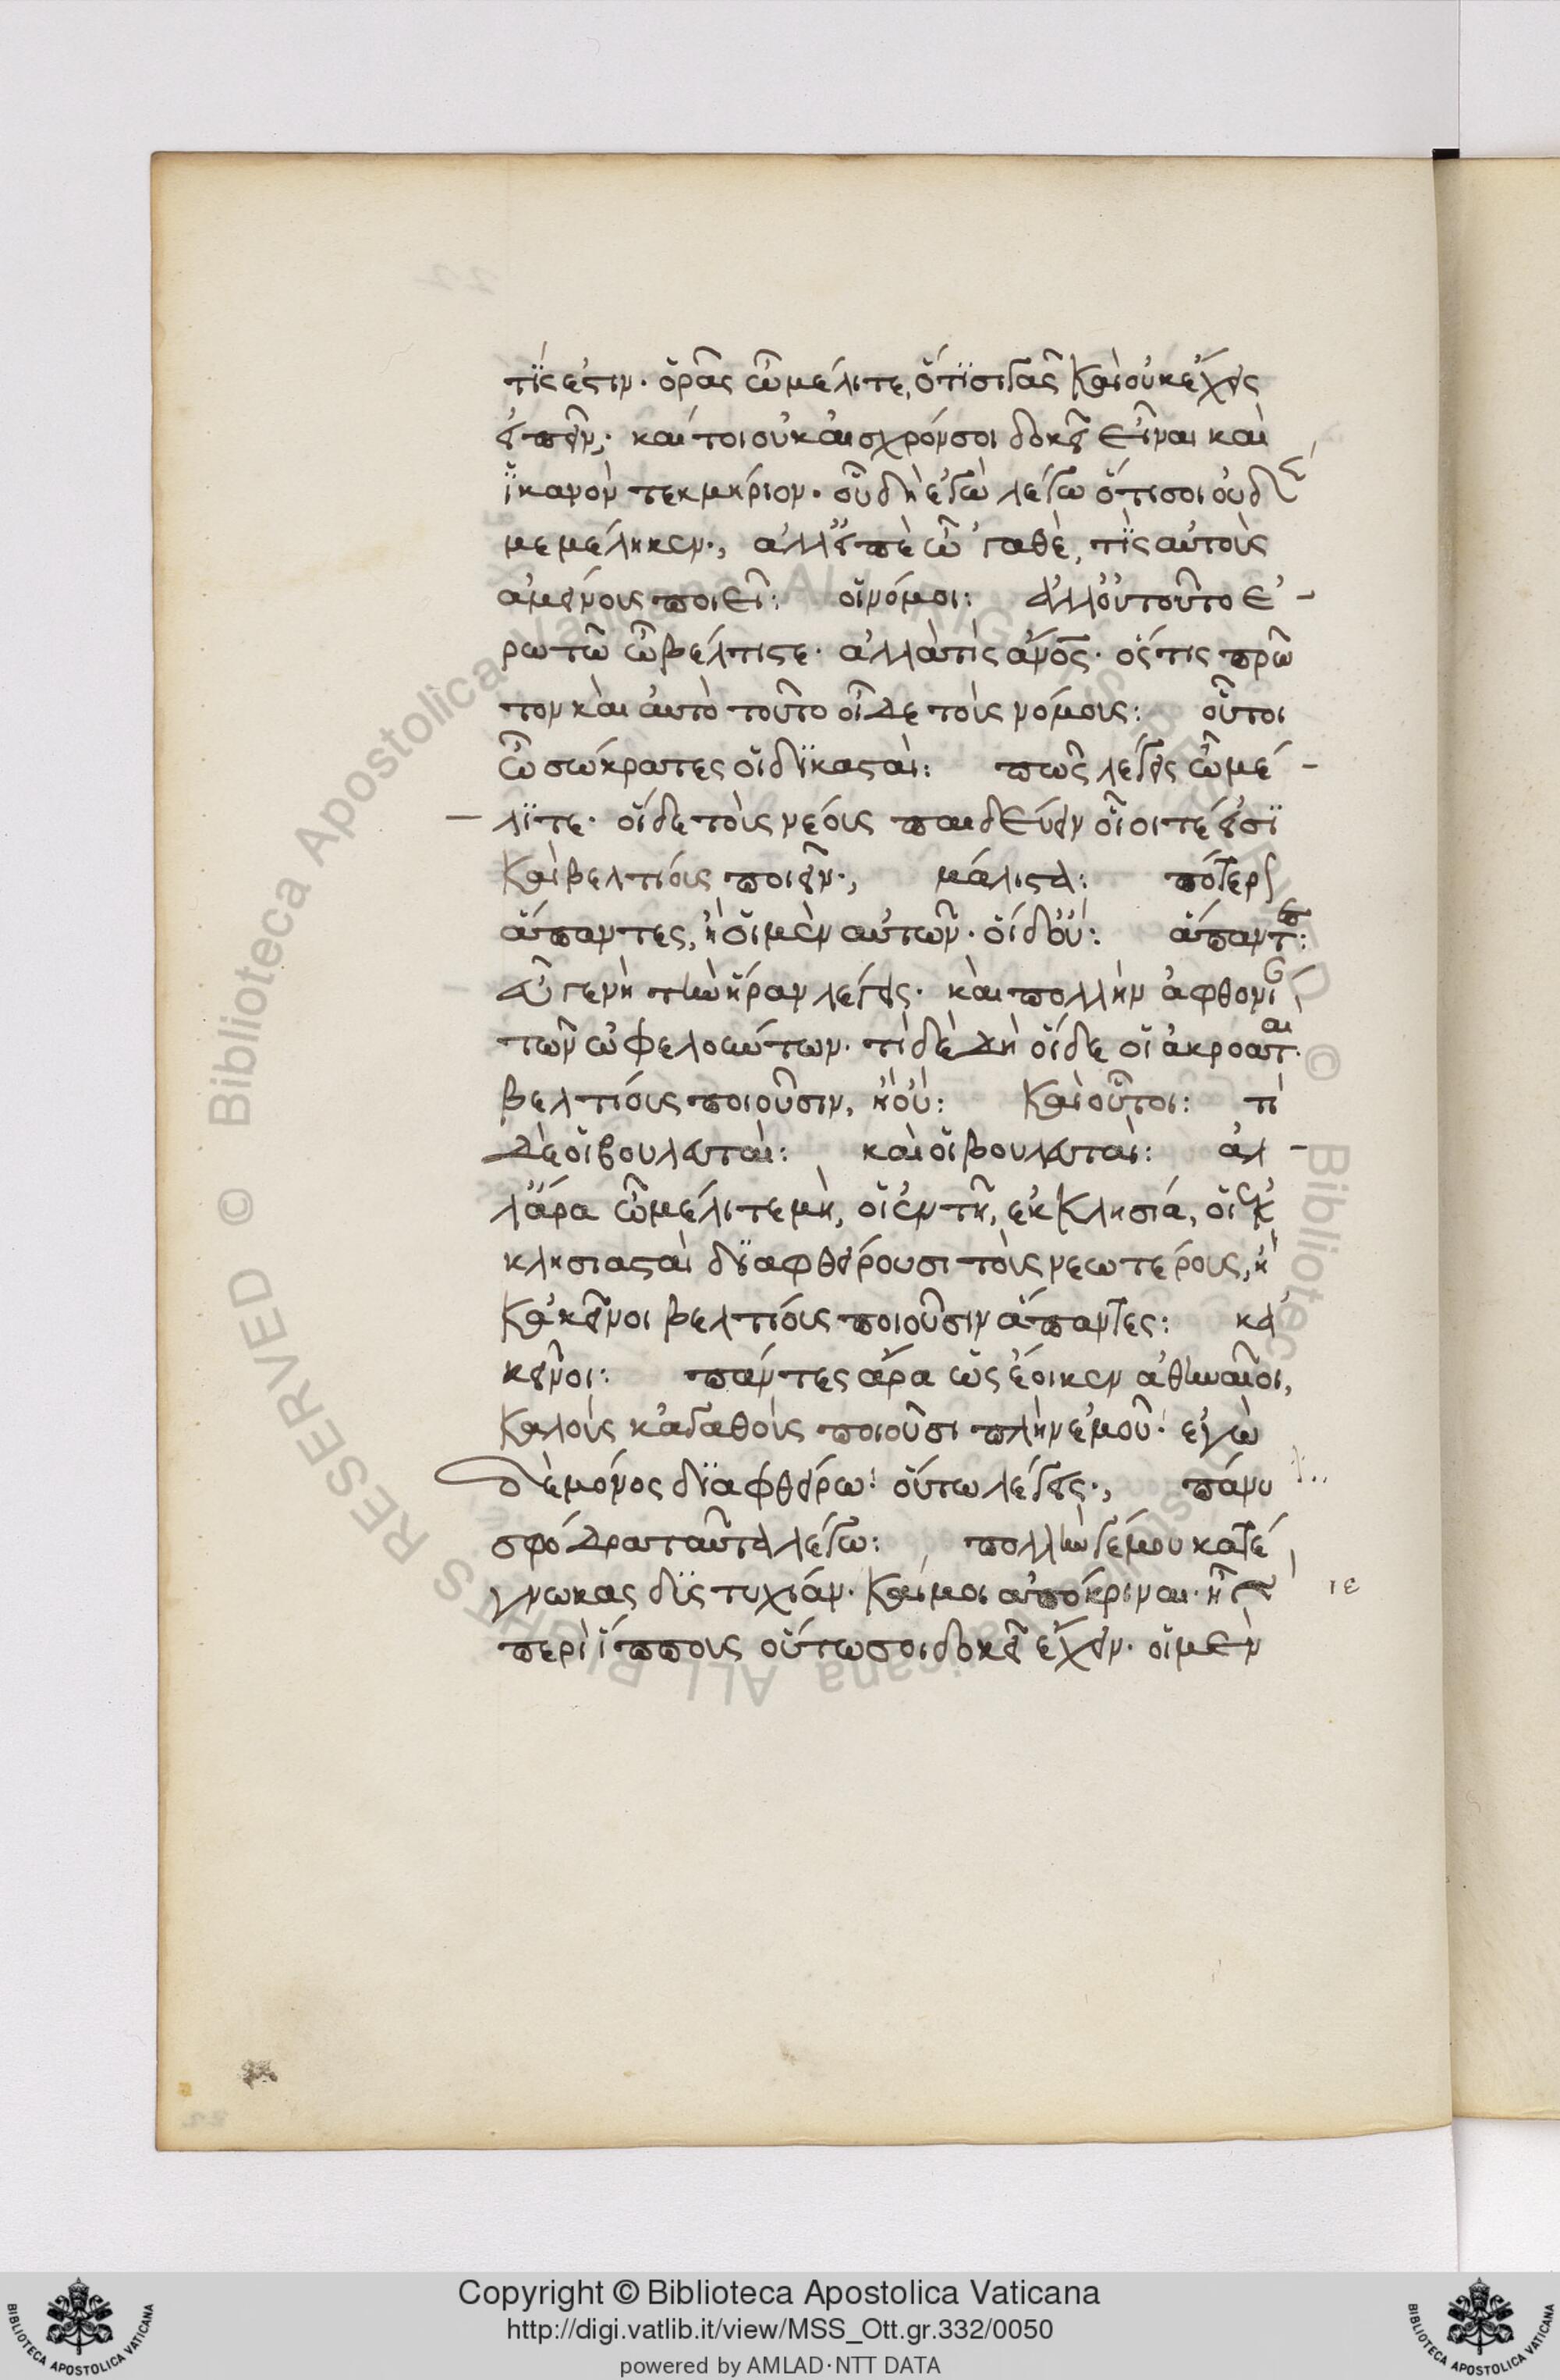 τίς ἐστιν. ὁρᾶς ὦ μέλιτε, ὅτι σιγᾶς καὶ οὐκ ἔχεις
εἰπεῖν; καί τοι οὐκ αἰσχρόν σοι δοκεῖ εἶναι καὶ
ἱκανὸν τεκμήριον. οὗ δὴ ἐγὼ λέγω ὅτι σοι οὐδὲν
μεμέληκεν., ἀλλ' εἰπὲ ὦ 'γαθὲ, τίς αὐτοὺς
ἀμείνους ποιεῖ: οἱ νόμοι: ἀλλ' οὐ τοῦτο ἐ-
ρωτῶ ὦ βέλτιστε. ἀλλὰ τίς ἄνος. ὅστις πρῶ
τον καὶ αὐτὸ τοῦτο οἶδε τοὺς νόμους: οὗτοι
ὦ σώκρατες οἱ δικασταί: πῶς λέγεις ὦ μέ-
λιτε. οἵδε τοὺς νέους παιδεύειν οἷοί τέ εἰσι
καὶ βελτίους ποιεῖν., μάλιστα: πότερον
ἅπαντες, ἢ οἱ μὲν αὐτῶν. οἱ δ' οὔ: ἅπαντες:
εὖ γε νὴ τὴν ἥραν λέγεις. καὶ πολλὴν ἀφθονίαν
τῶν ὠφελούντων. τί δὲ δὴ οἵδε οἱ ἀκροαταὶ.
βελτίους ποιοῦσιν, ἢ οὔ: καὶ οὗτοι: τί
δὲ οἱ βουλευταί: καὶ οἱ βουλευταί: ἀλ-
λ' ἄρα ὦ μέλιτε μὴ, οἱ ἐν τῇ ἐκκλησίᾳ, οἱ ἐκ
κλησιασταὶ διαφθείρουσι τοὺς νεωτέρους, ἢ
κἀκεῖνοι βελτίους ποιοῦσιν ἅπαντες: κἀ
κεῖνοι: πάντες ἄρα ὡς ἔοικεν ἀθηναῖοι,
καλοὺς κἀγαθοὺς ποιοῦσι πλὴν ἐμοῦ. ἐγὼ
δὲ μόνος διαφθείρω. οὕτω λέγεις., πάνυ
σφόδρα ταῦτα λέγω: πολλήν γ' ἐμοῦ κατέ
γνωκας δυστυχίαν. καί μοι ἀπόκριναι. ἦ καὶ
περὶ ἵππους οὕτω σοι δοκεῖ ἔχειν. οἱ μὲν
ιε
Copyright © Biblioteca Apostolica Vaticana
http://digi.vatlib.it/view/MSS_Ott.gr.332/0050
powered by AMLAD·NTT DATA